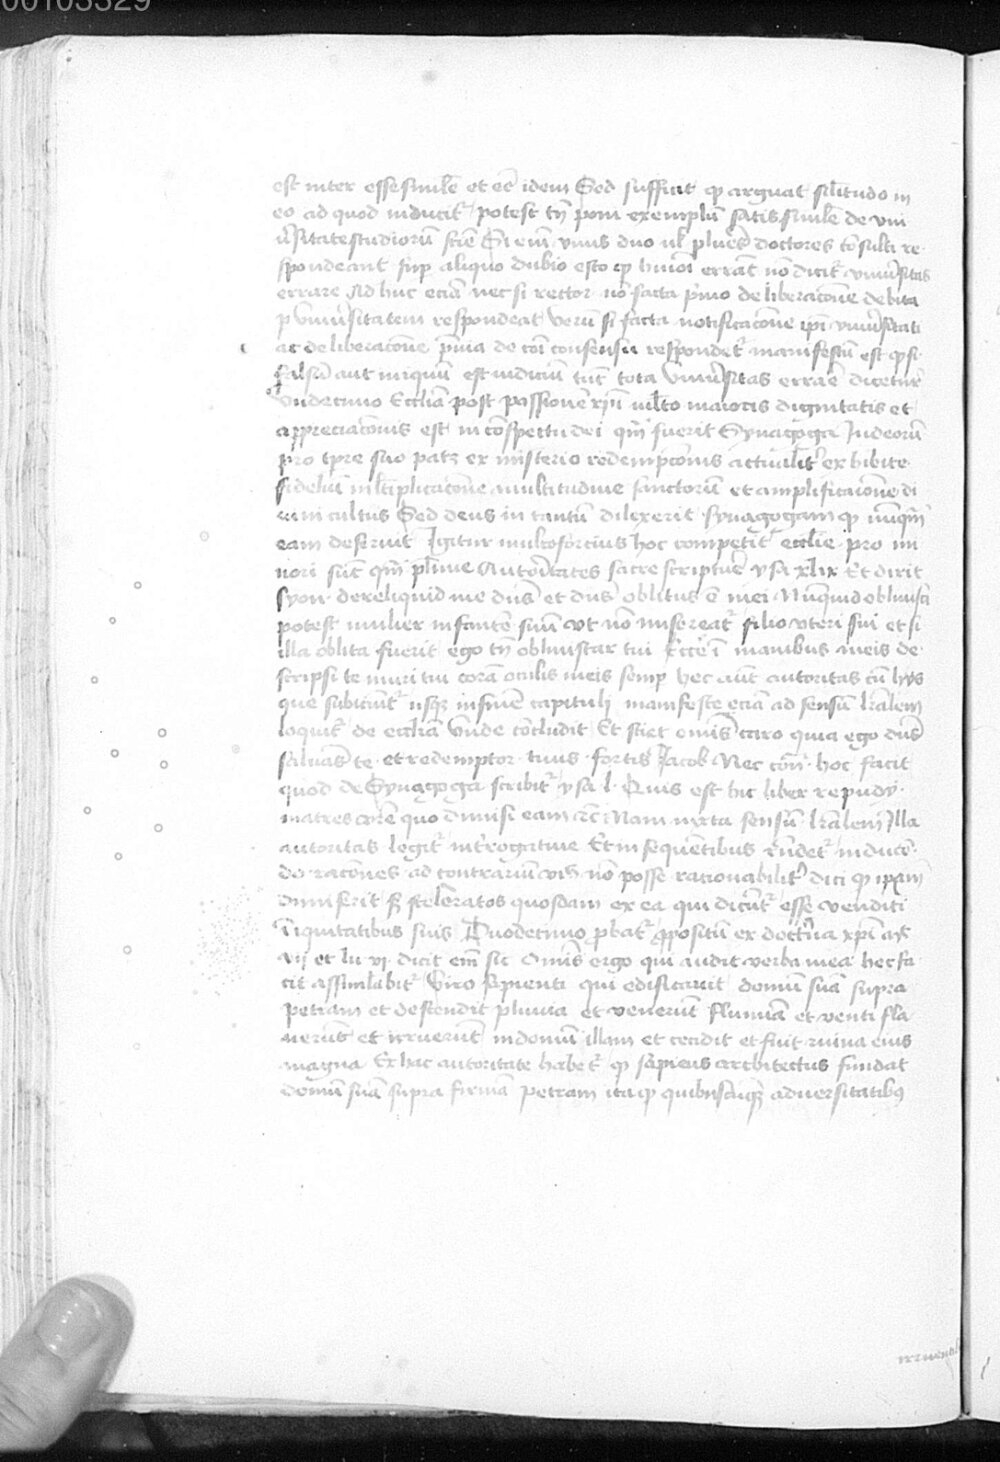 00103329
est inter esse simile et eē idem Sed sufficit qp arguat silitudo in
eo ad quod inducitr potest tn̄ poni exemplū satis simile de vni
v̓sitate studiorū scie Si eni vnus duo ul plures doctores cōsulti re
spondeant sup aliquo dubio esto qp huiōi errāt nō dicitr vniuersitas
errare Ad huc eciā nec si rector nō facta p̓uio deliberacōne debita
p vniuersitatem respondeat verū si facta notificacōne ipi vniuersitati
ac deliberacōne p̓uia de cōi consensu respondetr manifestū est qp si
falsū aut iniquū est iudiciū tūc tota vniuersitas errare dicetur
Vndecimo Ecclia post passionē xpi mlto maioris dignitatis et
appreciacōnis est in cōspectu dei qm̄ fuerit Synagoga Iudeorū
pro tpre suo patz ex misterio redempcōnis actualitr exhibite
fidelium mltiplicacōne multitudine sanctorū et amplificacione di
uini cultus Sed deus in tantū dilexerit synagogam qp nūqm̄
eam deseruit Igitur multo forcius hoc competit ecclie pro mi
nori sūt qm̄ plime Autoritates sacre scripture ysa xlix Et dixit
syon dereliquid me dūs et dūs oblitus ē mei Nūquid obliuisci
potest mulier infantē suū vt nō misereatr filio vteri sui et si
illa oblita fuerit ego tn̄ obliuiscar tui Ecce ī manibus meis de
scripsi te muri tui corā oculis meis semp hec aūt autoritas cū hys
que subiciūtr usqz in finem capituli manifeste eciā ad sensū lrālem
loquitr de ecclia Vnde cōcludit Et sciet omīs caro quia ego dūs
saluās te et redemptor tuus fortis Iacob Nec cōtr hoc facit
quod de Synagoga scribitr ysa l Quis est hic liber repudy
matres vr̄e quo dimisi eam &c Nam iuxta sensū lrālem Illa
autoritas legitr int̓rogatiue Et in sequentibus rn̄detr inducē
do racōnes ad contrarium nō posse racionabilitr dici qp ipam
dimiserit sz sceleratos quosdam ex ea qui dicūtr esse venditi
iniquitatibus suis Duodecimo pbatr propositū ex doctrina xpi mt
vij et lu vj dicit eni sic Omīs ergo qui audit verba mea hec fa
cit assimilabitr viro sapienti qui edificauit domū suā supra
petram et descendit pluuia et venerūt flumiā et venti fla
uerūt et irruerūt in domū illam et cecidit et fuit ruina eius
magna Ex hac autoritate habetr qp sapiens architectus fundat
domū suā supra firmā petram ita qp quibuscūqz aduersitatibus